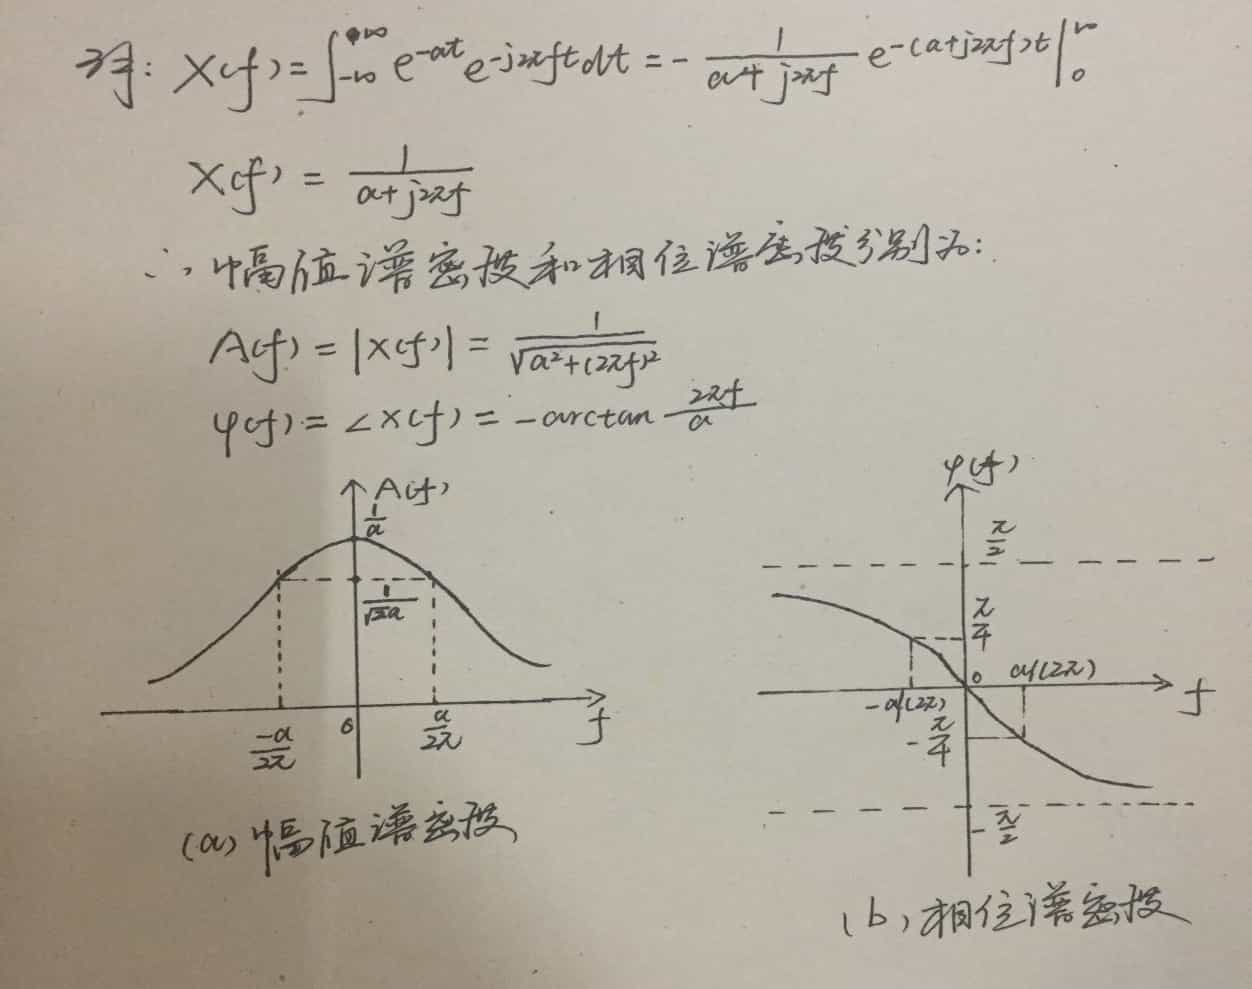 解: X(f) = ∫_{-∞}^{+∞} e^{-at} e^{-j2πft} dt = - 1/(a+j2πf) e^{-(a+j2πf)t} |_0^∞
X(f) = 1/(a+j2πf)
∴ 幅值谱密度和相位谱密度分别为:
A(f) = |X(f)| = 1/√(a²+(2πf)²)
φ(f) = ∠X(f) = -arctan 2πf/a
A(f)
1/a
1/(√2a)
-a/2π
0
a/2π
f
(a) 幅值谱密度
φ(f)
π/2
π/4
0
a/(2π)
-a/(2π)
f
-π/4
-π/2
(b) 相位谱密度